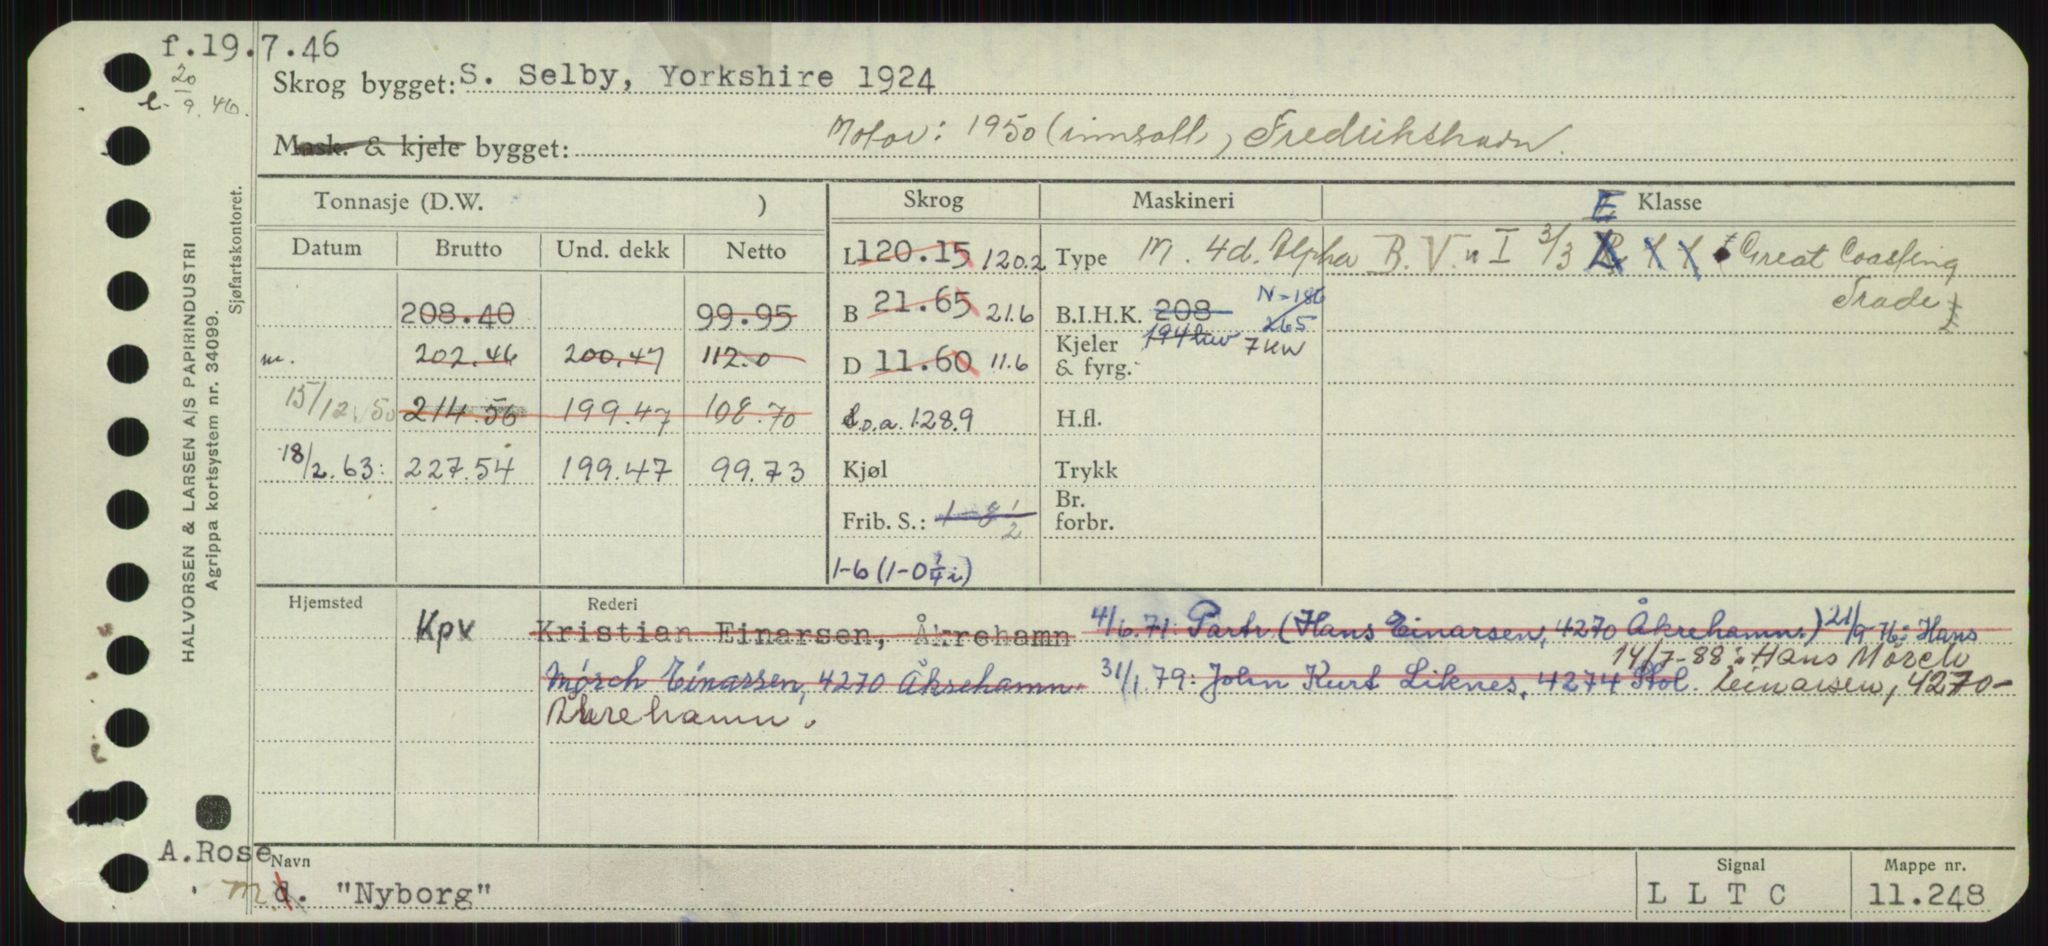 f.19.7.46
20
9.46.
Skrog bygget: S. Selby, Yorkshire 1924
Mask. & kjele bygget: Motor: 1950 (innsatt) Fredrikshavn.
Tonnasje (D.W. ) Skrog Maskineri E Klasse
Datum Brutto Und. dekk Netto
L 120.15 120.2 Type M. 4d. Alpha B.V. I 3/3 Great Coasting
Trade
208.40 99.95 B 21.65 21.6 B.I.H.K. 208 N-186
265
m. 202.46 200.47 112.0 D 11.60 11.6 Kjeler & fyrg. 194 7 KW
15/12.50 214.56 199.47 108.70 L.o.a. 128.9 H.fl.
18/2.63: 227.54 199.47 99.73 Kjøl Trykk
Frib. S.: 1-8 1/2 Br. forbr.
1-6 (1-0 3/4 i)
Hjemsted Rederi
Kpv Kristian Einarsen, Åkrehamn 4/6.71: Partr (Hans Einarsen, 4270 Åkrehamn.) 21/9-76: Hans
Mørch Einarsen, 4270 Åkrehamn. 31/1.79: John Kurt Liknes, 4274 Stol. 14/7-88: Hans Mörch
Einarsen, 4270-
Åkrehamn.
A.Rose
Navn Signal Mappe nr.
m d. "Nyborg" L L T C 11.248
HALVORSEN & LARSEN A/S PAPIRINDUSTRI
Agrippa kortsystem nr. 34099.
Sjøfartskontoret.